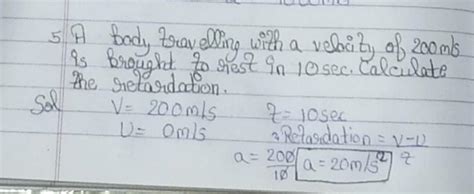 5. A body travelling with a velocity of 200m/s
is brought to rest in 10 sec. Calculate
the retardation.
Sol V = 200m/s t = 10sec
U = 0m/s Retardation = V-U
t
a = 200
10 a = 20m/s²